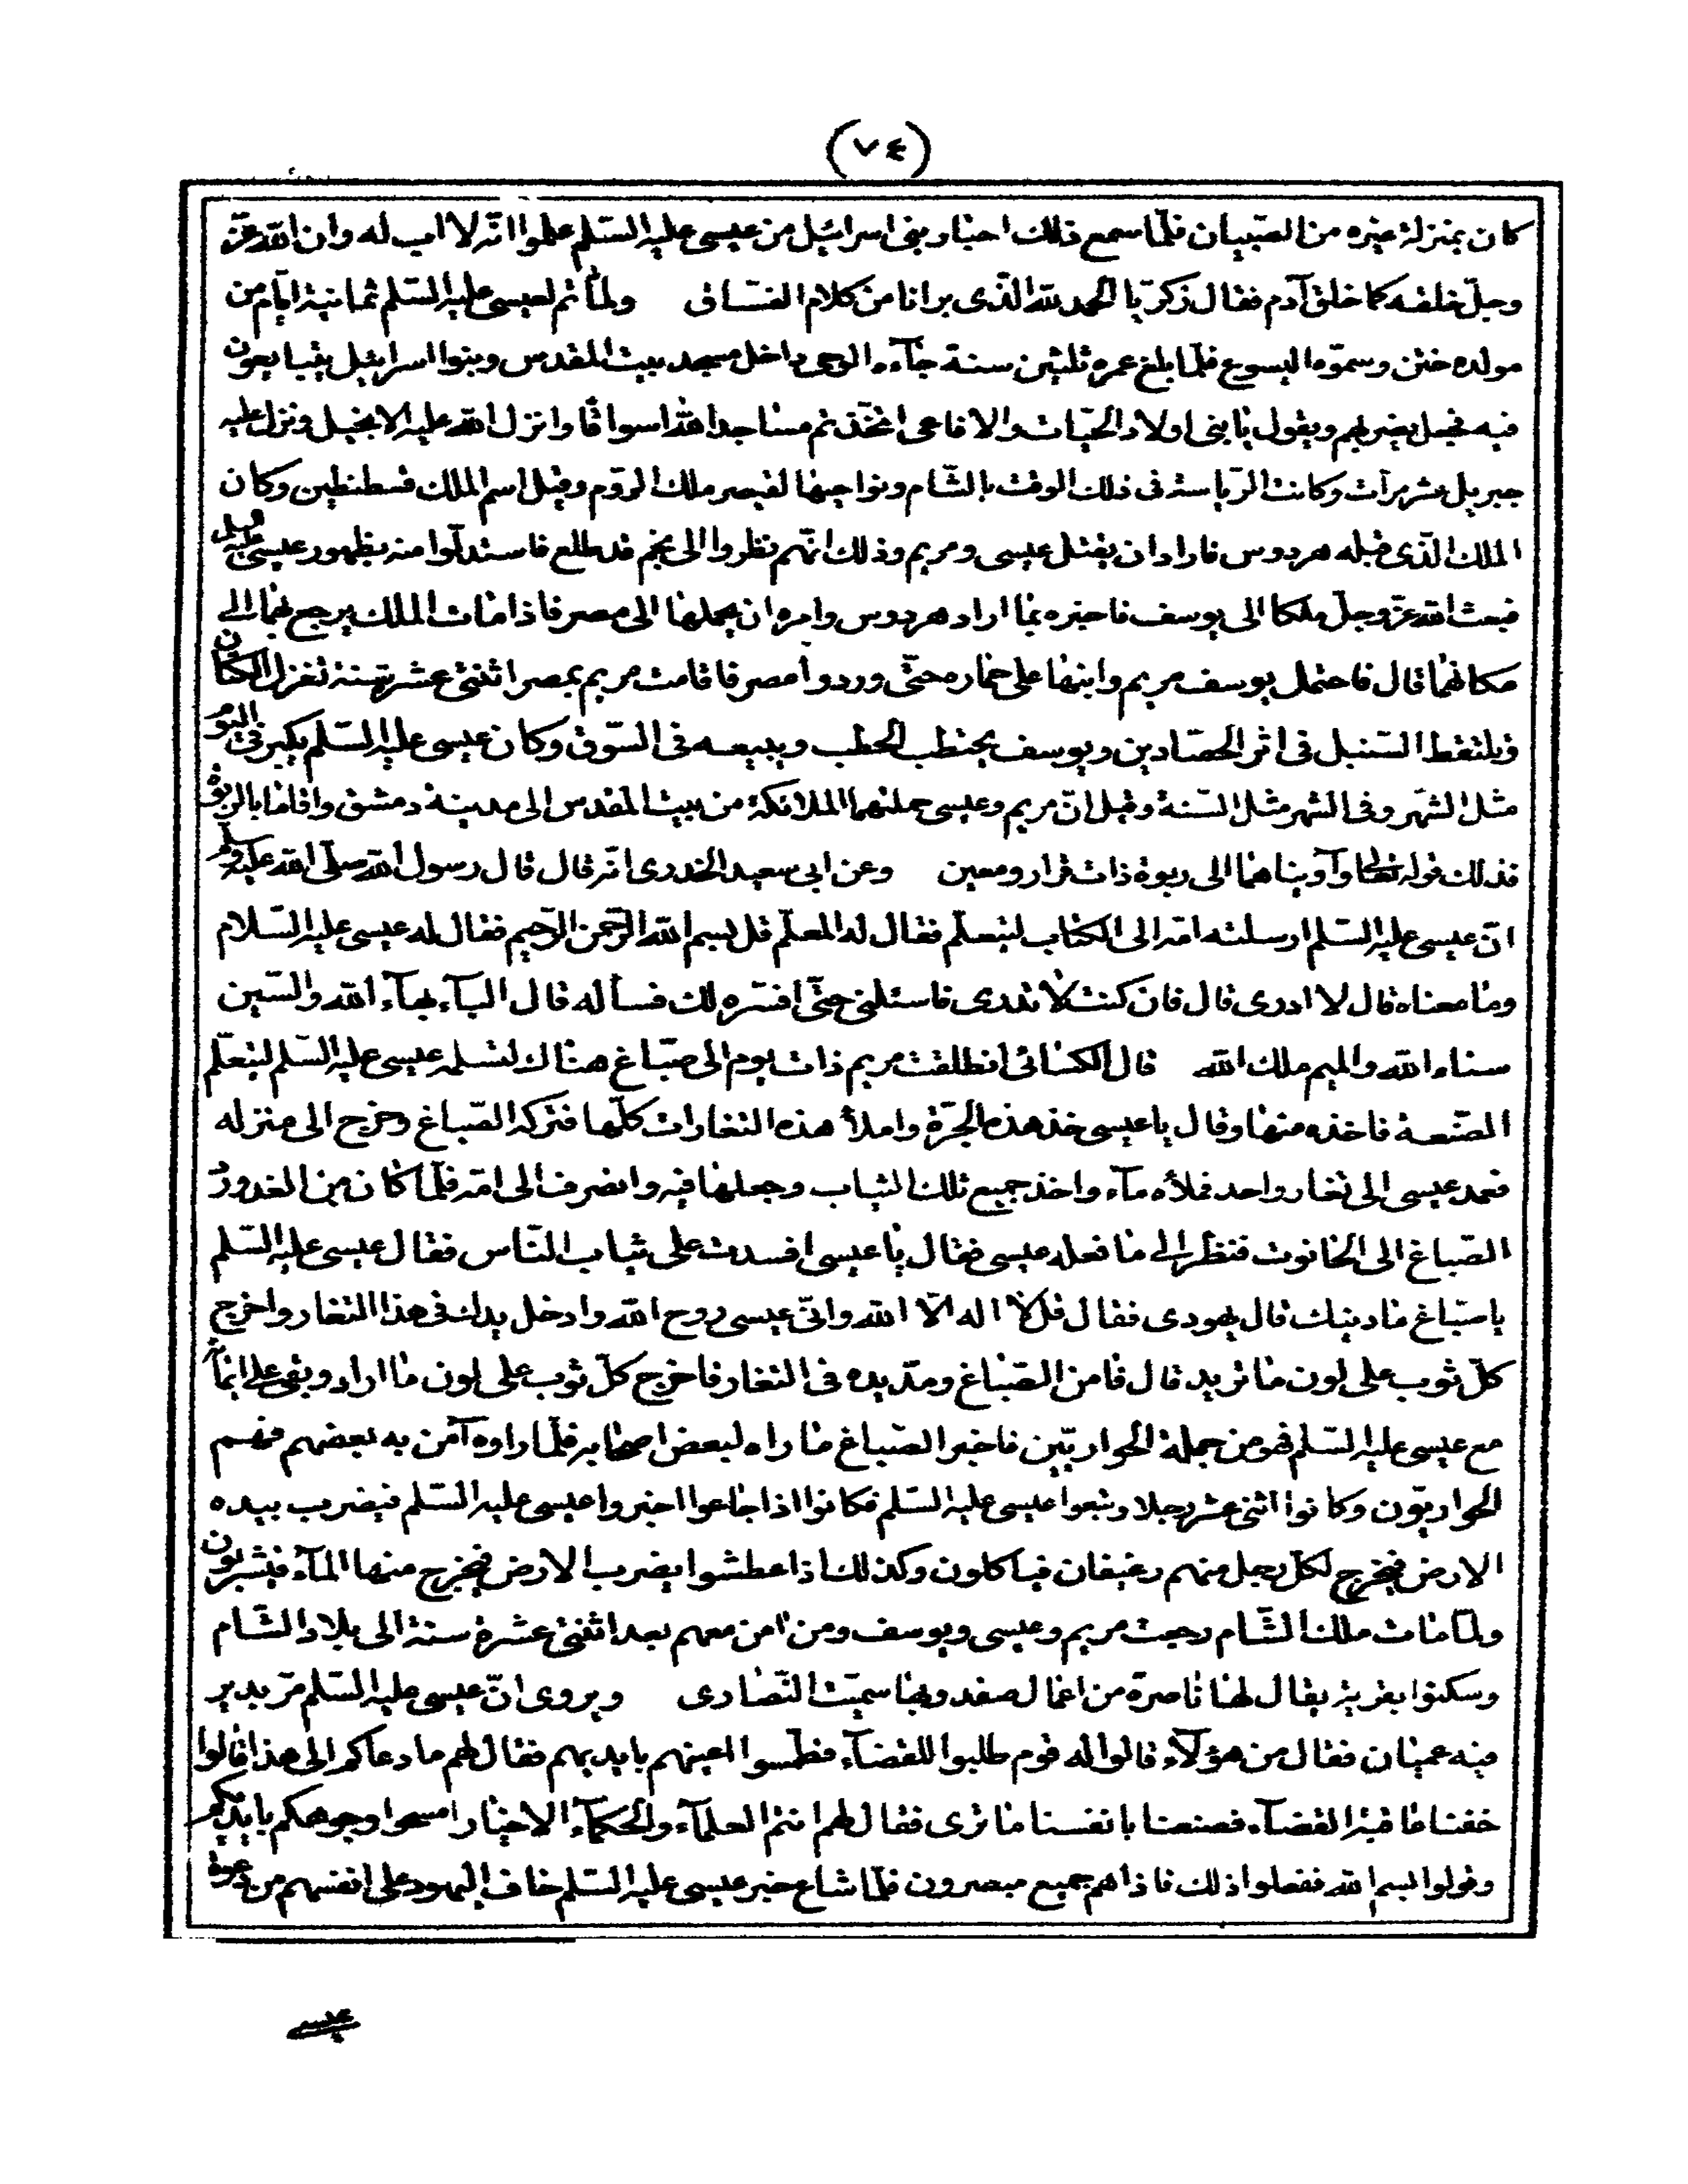 (٧٤)
كان بمنزلة غيره من الصّبيان فلمّا سمع ذلك احبار بنى اسرائيل من عيسى عليه السّلم علموا انّه لا اب له وان الله عزّ
وجلّ خلقه كما خلق آدم فقال زكريّا الحمد لله الّذى برانا من كلام الفسّاق ولمّا تم لعيسى عليه السّلم ثمانية ايّام من
مولده ختن وسمّوه اليسوع فلمّا بلغ عمره ثلثين سنة جآءه الوحى داخل مسجد بيت المقدس وبنوا اسرائيل يتبايعون
فيه فجعل يضربهم ويقول يا بنى اولاد الحيّات والافاعى اتّخذتم مساجد الله اسواقا وانزل الله عليه الانجيل ونزل عليه
جبريل عشر مرآت وكانت الرّياسة فى ذلك الوقت بالشّام ونواحيها لقيصر ملك الرّوم وقيل اسم الملك قسطنطين وكان
الملك الّذى قبله هردوس فاراد ان يقتل عيسى ومريم وذلك انّهم نظروا الى نجم قد طلع فاستدلّوا منه بظهور عيسى
فبعث الله عزّ وجلّ ملكا الى يوسف فاخبره بما اراد هردوس وامره ان يحملها الى مصر فاذا مات الملك يرجع بهما الى
مكانهما قال فاحتمل يوسف مريم وابنها على حماره حتّى وردوا مصر فاقامت مريم بمصر اثنتى عشرة سنة تغزل الكتّان
ويلتقط السّنبل فى اثر الحصّادين ويوسف يحتطب الحطب ويبيعه فى السّوق وكان عيسى عليه السّلم يكبر فى اليوم
مثل الشّهر وفى الشهر مثل السّنة وقيل انّ مريم وعيسى حملتهما الملائكة من بيت المقدس الى مدينة دمشق واقاما بالربوة
فذلك قوله تعالى وآويناهما الى ربوة ذات قرار ومعين وعن ابى سعيد الخدرى انّه قال قال رسول الله صلّى الله عليه وسلم
انّ عيسى عليه السّلم ارسلته امّه الى الكتاب ليتعلّم فقال له المعلّم قل بسم الله الرّحمن الرّحيم فقال له عيسى عليه السّلام
وما معناه قال لا ادرى قال فان كنت لا تدرى فاسئلنى حتّى افسّره لك فسأله قال البآء بهآء الله والسّين
سناء الله والميم ملك الله قال الكسائى انطلقت مريم ذات يوم الى صبّاغ هناك لتسلمه عيسى عليه السّلم ليتعلّم
الصّنعة فاخذه منها وقال يا عيسى خذ هذه الجرّة واملأ هذه النغارات كلّها فتركه الصّباغ وخرج الى منزله
فعمد عيسى الى نغار واحد فملأه مآء واخذ جميع تلك الثياب وجعلها فيه وانصرف الى امّه فلمّا كان من الغد ورد
الصّباغ الى الحانوت فنظر الى ما فعله عيسى فقال يا عيسى افسدت على ثياب النّاس فقال عيسى عليه السّلم
يا صبّاغ ما دينك قال يهودى فقال قل لا اله الّا الله وانّى عيسى روح الله وادخل يدك فى هذا النغار واخرج
كلّ ثوب على لون ما تريد قال فامن الصّباغ ومدّ يده فى النغار فاخرج كلّ ثوب على لون ما اراد وبقى على ايمانه
مع عيسى عليه السّلم فهو من جملة الحواريّين فاخبر الصّباغ ما راه لبعض اصحابه فلمّا راوه آمن به بعضهم فهم
الحواريّون وكانوا اثنى عشر رجلا وتبعوا عيسى عليه السّلم فكانوا اذا جاعوا اخبروا عيسى عليه السّلم فيضرب بيده
الارض فيخرج لكلّ رجل منهم رغيفان فياكلون وكذلك اذا عطشوا يضرب الارض فيخرج منها المآء فيشربون
ولمّا مات ملك الشّام رجعت مريم وعيسى ويوسف ومن امن معهم بعد اثنتى عشرة سنة الى بلاد الشّام
وسكنوا بقرية يقال لها ناصرة من اعمال صفد وبها سمّيت النّصارى ويروى انّ عيسى عليه السّلم مرّ بدير
فيه عميان فقال من هؤلآء قالوا له قوم طلبوا للقضآء فطمسوا اعينهم بايديهم فقال لهم ما دعاكم الى هذا قالوا
خفنا عاقبة القضآء فصنعنا بانفسنا ما ترى فقال لهم انتم العلمآء والحكمآء الاخيار امسحوا وجوهكم بايديكم
وقولوا بسم الله ففعلوا ذلك فاذا هم جميع مبصرون فلمّا شاع خبر عيسى عليه السّلم خاف اليهود على انفسهم من دعوة
عيسى